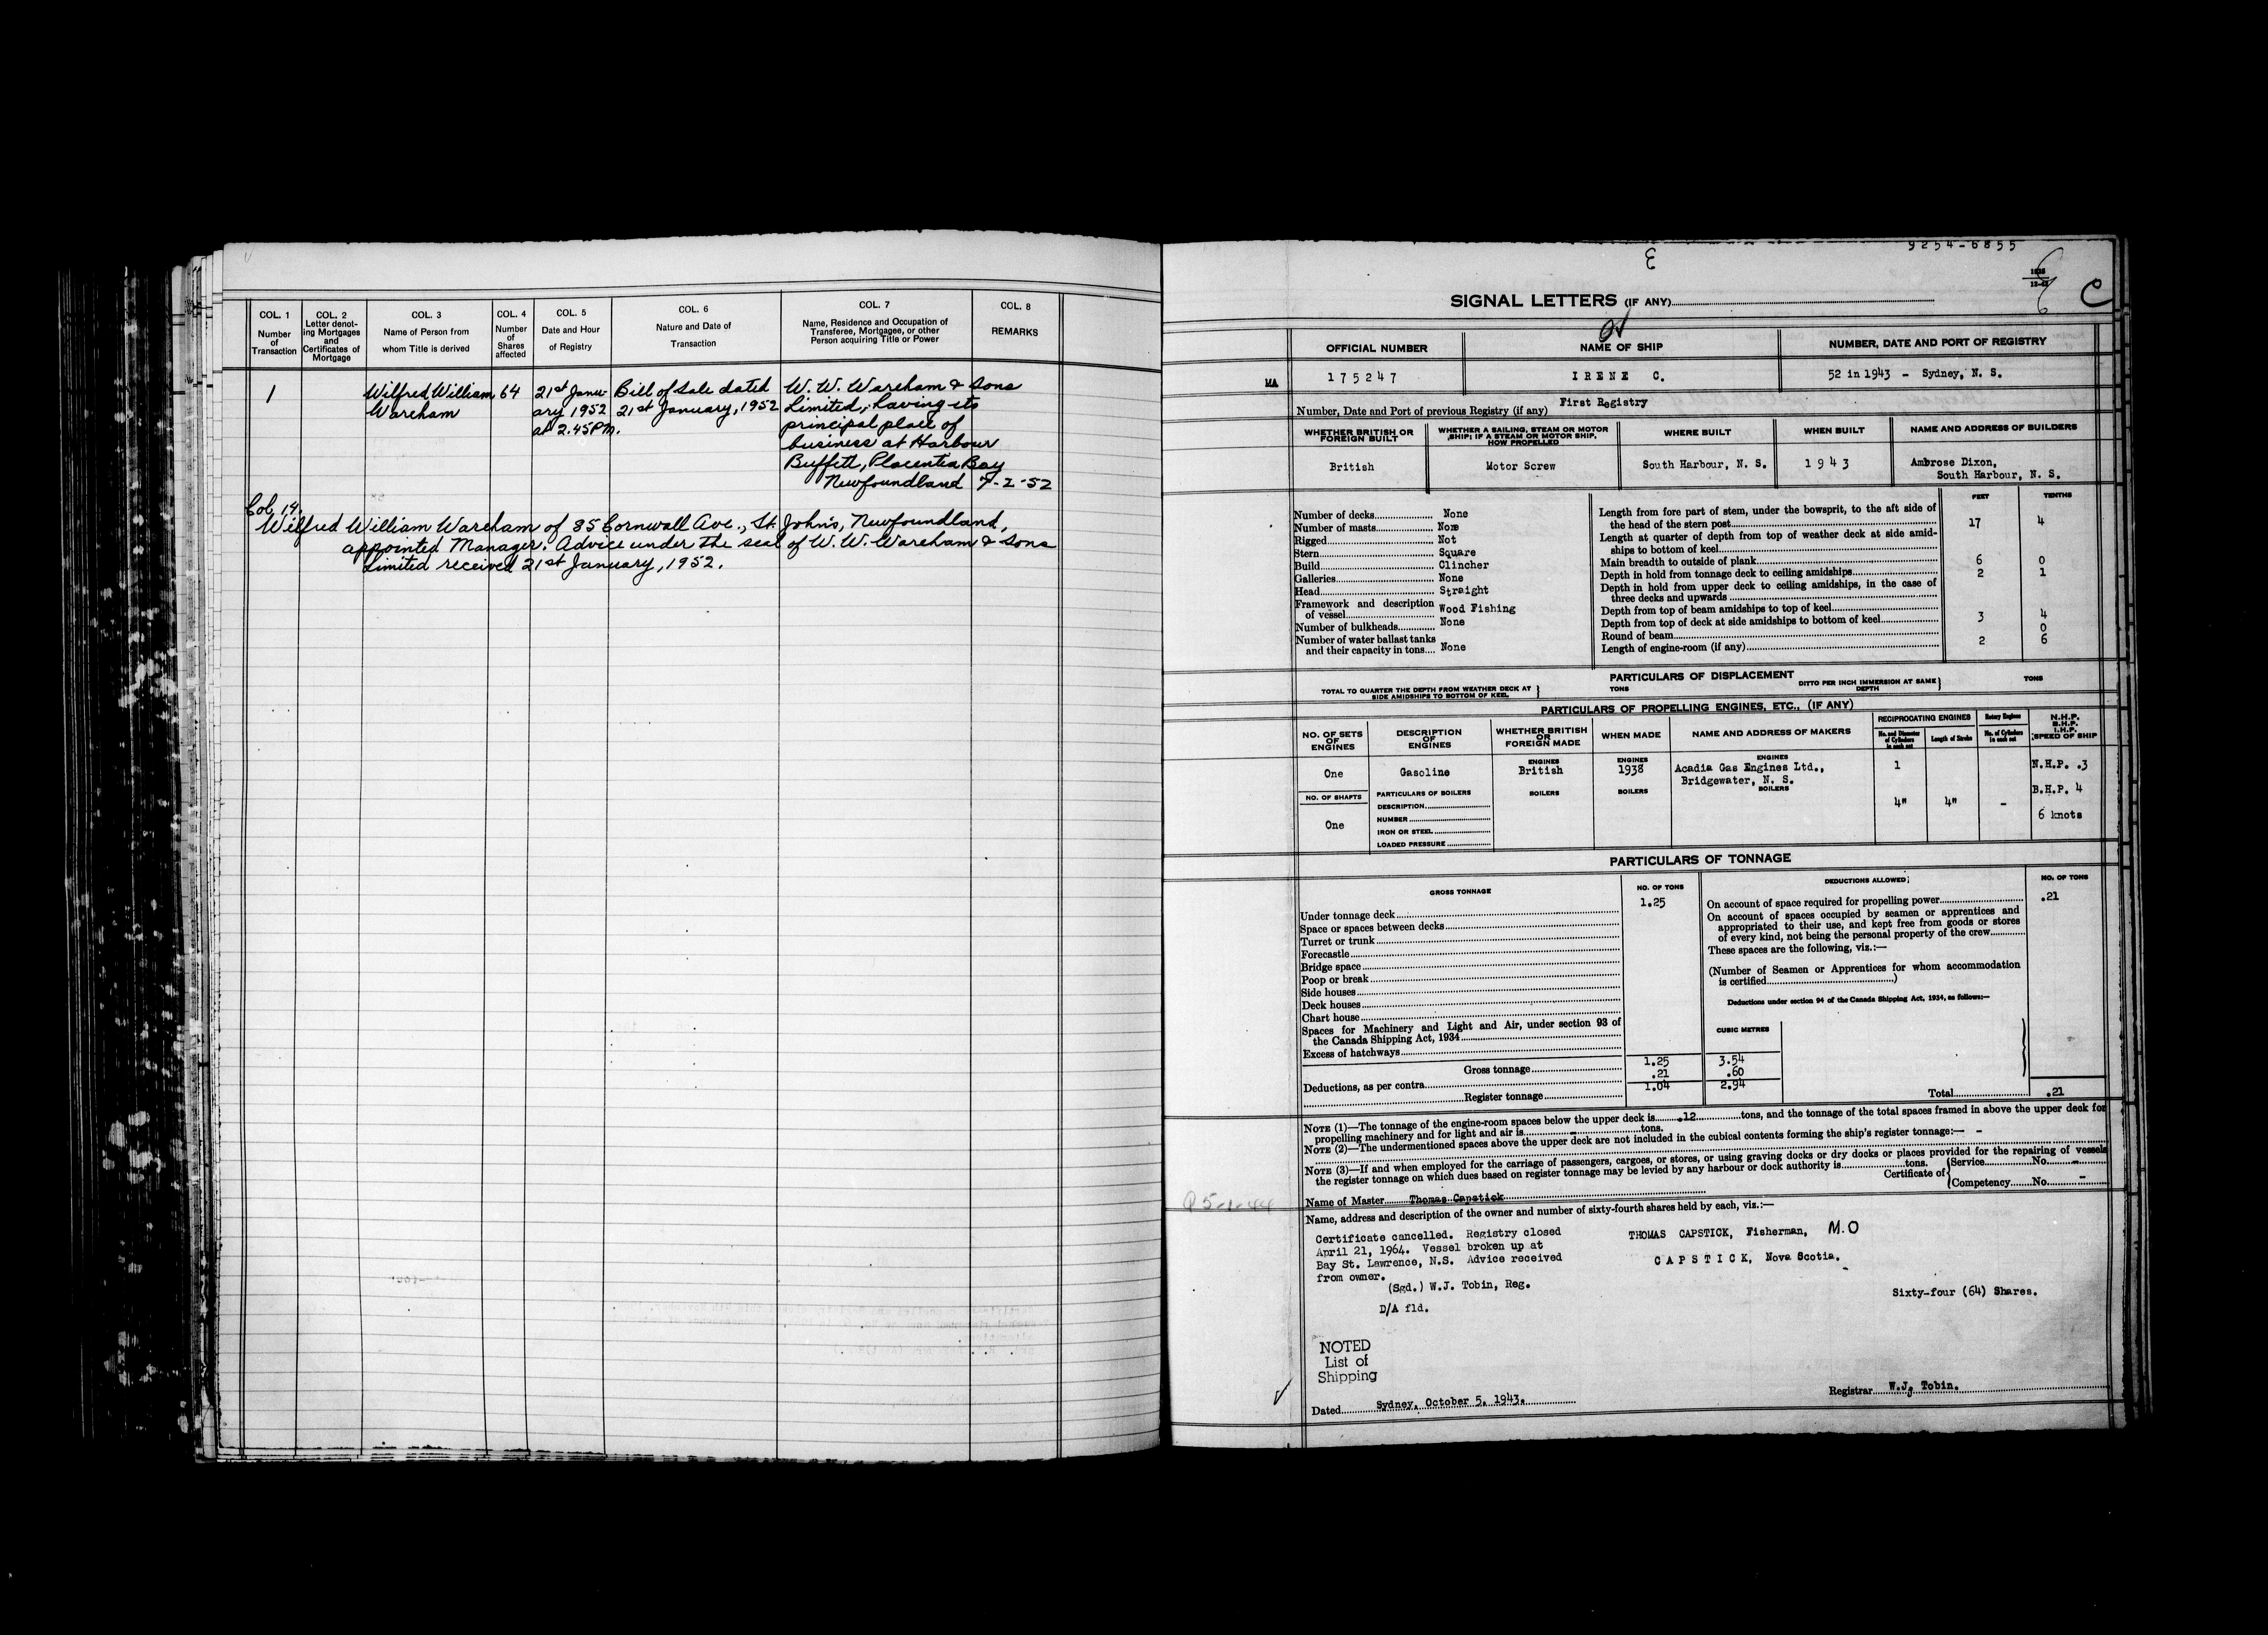 COL. 1
Number
of
Transaction
COL. 2
Letter denot-
ing Mortgages
and
Certificates of
Mortgage
COL. 3
Name of Person from
whom Title is derived
COL. 4
Number
of
Shares
affected
COL. 5
Date and Hour
of Registry
COL. 6
Nature and Date of
Transaction
COL. 7
Name, Residence and Occupation of
Transferee, Mortgagee, or other
Person acquiring Title or Power
COL. 8
REMARKS
1
Wilfred William
Wareham
64
21st Janu-
ary 1952
at 2.45 P.M.
Bill of Sale dated
21st January, 1952
W. W. Wareham & Sons
Limited, having its
principal place of
business at Harbour
Buffett, Placentia Bay
Newfoundland 7-2-52
Col. 19.
Wilfred William Wareham of 35 Cornwall Ave., St. John's, Newfoundland,
appointed Manager. Advice under the seal of W. W. Wareham & Sons
Limited received 21st January, 1952.
9254-6855
SIGNAL LETTERS (IF ANY)
C
OFFICIAL NUMBER
NAME OF SHIP
NUMBER, DATE AND PORT OF REGISTRY
MA
175247
IRENE C.
52 in 1943 - Sydney, N. S.
Number, Date and Port of previous Registry (if any) First Registry
WHETHER BRITISH OR
FOREIGN BUILT
WHETHER A SAILING, STEAM OR MOTOR
SHIP; IF A STEAM OR MOTOR SHIP,
HOW PROPELLED
WHERE BUILT
WHEN BUILT
NAME AND ADDRESS OF BUILDERS
British
Motor Screw
South Harbour, N. S.
1943
Ambrose Dixon,
South Harbour, N. S.
Number of decks None
Number of masts None
Rigged Not
Stern Square
Build Clincher
Galleries None
Head Straight
Framework and description
of vessel Wood Fishing
Number of bulkheads None
Number of water ballast tanks
and their capacity in tons None
FEET TENTHS
Length from fore part of stem, under the bowsprit, to the aft side of
the head of the stern post 17 4
Length at quarter of depth from top of weather deck at side amid-
ships to bottom of keel
Main breadth to outside of plank 6 0
Depth in hold from tonnage deck to ceiling amidships 2 1
Depth in hold from upper deck to ceiling amidships, in the case of
three decks and upwards
Depth from top of beam amidships to top of keel
Depth from top of deck at side amidships to bottom of keel 3 4
Round of beam 0
Length of engine-room (if any) 2 6
PARTICULARS OF DISPLACEMENT
TOTAL TO QUARTER THE DEPTH FROM WEATHER DECK AT
SIDE AMIDSHIPS TO BOTTOM OF KEEL
TONS
DITTO PER INCH IMMERSION AT SAME
DEPTH
TONS
PARTICULARS OF PROPELLING ENGINES, ETC., (IF ANY)
NO. OF SETS
OF
ENGINES
DESCRIPTION
OF
ENGINES
WHETHER BRITISH
OR
FOREIGN MADE
WHEN MADE
NAME AND ADDRESS OF MAKERS
RECIPROCATING ENGINES
No. and Diameter
of Cylinders
in each set
Length of Stroke
Rotary Engines
No. of Cylinders
in each set
N.H.P.
B.H.P.
I.H.P.
SPEED OF SHIP
One
Gasoline
ENGINES
British
ENGINES
1938
ENGINES
Acadia Gas Engines Ltd.,
Bridgewater, N. S.
1
N.H.P. .3
B.H.P. 4
6 knots
NO. OF SHAFTS
One
PARTICULARS OF BOILERS
DESCRIPTION
NUMBER
IRON OR STEEL
LOADED PRESSURE
BOILERS
BOILERS
BOILERS
4"
4"
-
PARTICULARS OF TONNAGE
GROSS TONNAGE
NO. OF TONS
Under tonnage deck 1.25
Space or spaces between decks
Turret or trunk
Forecastle
Bridge space
Poop or break
Side houses
Deck houses
Chart house
Spaces for Machinery and Light and Air, under section 93 of
the Canada Shipping Act, 1934
Excess of hatchways
CUBIC METRES
Gross tonnage 1.25 3.54
Deductions, as per contra .21 .60
Register tonnage 1.04 2.94
DEDUCTIONS ALLOWED
NO. OF TONS
On account of space required for propelling power .21
On account of spaces occupied by seamen or apprentices and
appropriated to their use, and kept free from goods or stores
of every kind, not being the personal property of the crew
These spaces are the following, viz.:—
(Number of Seamen or Apprentices for whom accommodation
is certified)
Deductions under section 94 of the Canada Shipping Act, 1934, as follows:—
Total .21
NOTE (1)—The tonnage of the engine-room spaces below the upper deck is .12 tons, and the tonnage of the total spaces framed in above the upper deck for
propelling machinery and for light and air is - tons.
NOTE (2)—The undermentioned spaces above the upper deck are not included in the cubical contents forming the ship's register tonnage:— -
NOTE (3)—If and when employed for the carriage of passengers, cargoes, or stores, or using graving docks or dry docks or places provided for the repairing of vessels
the register tonnage on which dues based on register tonnage may be levied by any harbour or dock authority is tons.
Certificate of
Service No. -
Competency No. -
Name of Master Thomas Capstick
Name, address and description of the owner and number of sixty-fourth shares held by each, viz.:—
Certificate cancelled. Registry closed
April 21, 1964. Vessel broken up at
Bay St. Lawrence, N.S. Advice received
from owner.
(Sgd.) W.J. Tobin, Reg.
D/A fld.
THOMAS CAPSTICK, Fisherman, M.O
CAPSTICK, Nova Scotia.
Sixty-four (64) Shares.
NOTED
List of
Shipping
Dated Sydney, October 5, 1943.
Registrar W.J. Tobin.